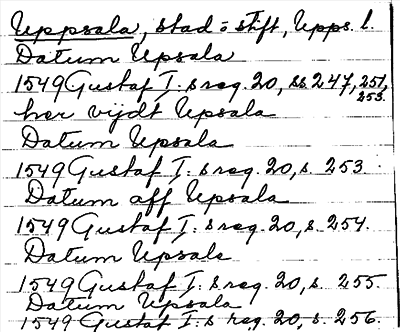 Uppsala, stad o stift, Upps. l.
Datum Upsala
1549 Gustaf I:s reg. 20, ss. 247, 251, 253.
her vijdt Upsala
Datum Upsala
1549 Gustaf I:s reg. 20, s. 253.
Datum aff Upsala
1549 Gustaf I:s reg. 20, s. 254.
Datum Upsale
1549 Gustaf I:s reg. 20, s. 255.
Datum Upsala
1549 Gustaf I:s reg. 20, s. 256.